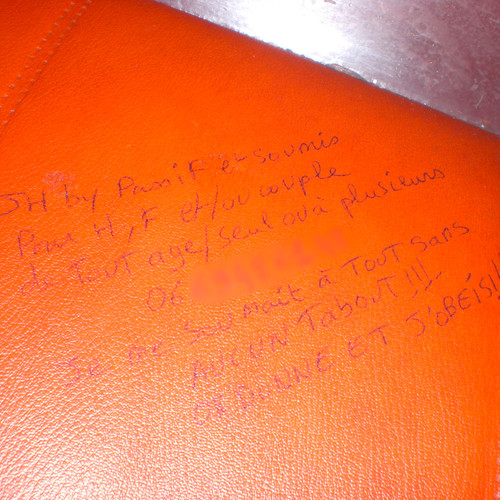 JH by Passif et soumis
Pour H, F et/ou couple
de Tout age/seul ou à plusieurs
06
Je me soumait à TOUT sans
AUCUN Tabout!!!
ORDONNE ET J'OBÉIS!!!